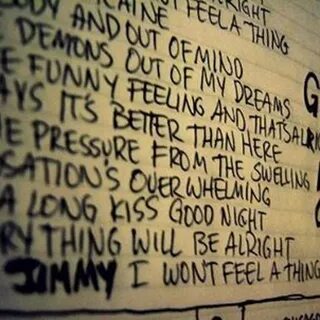 ALRIGHT
CAINE T FEEL A THING
BODY AND OUT OF MIND
DEMONS OUT OF MY DREAMS
E FUNNY FEELING AND THATS ALRIG
AYS ITS BETTER THAN HERE
E PRESSURE FROM THE SWELLING
SATION'S OVERWHELMING
A LONG KISS GOOD NIGHT
RYTHING WILL BE ALRIGHT
JIMMY I WONT FEEL A THING
G